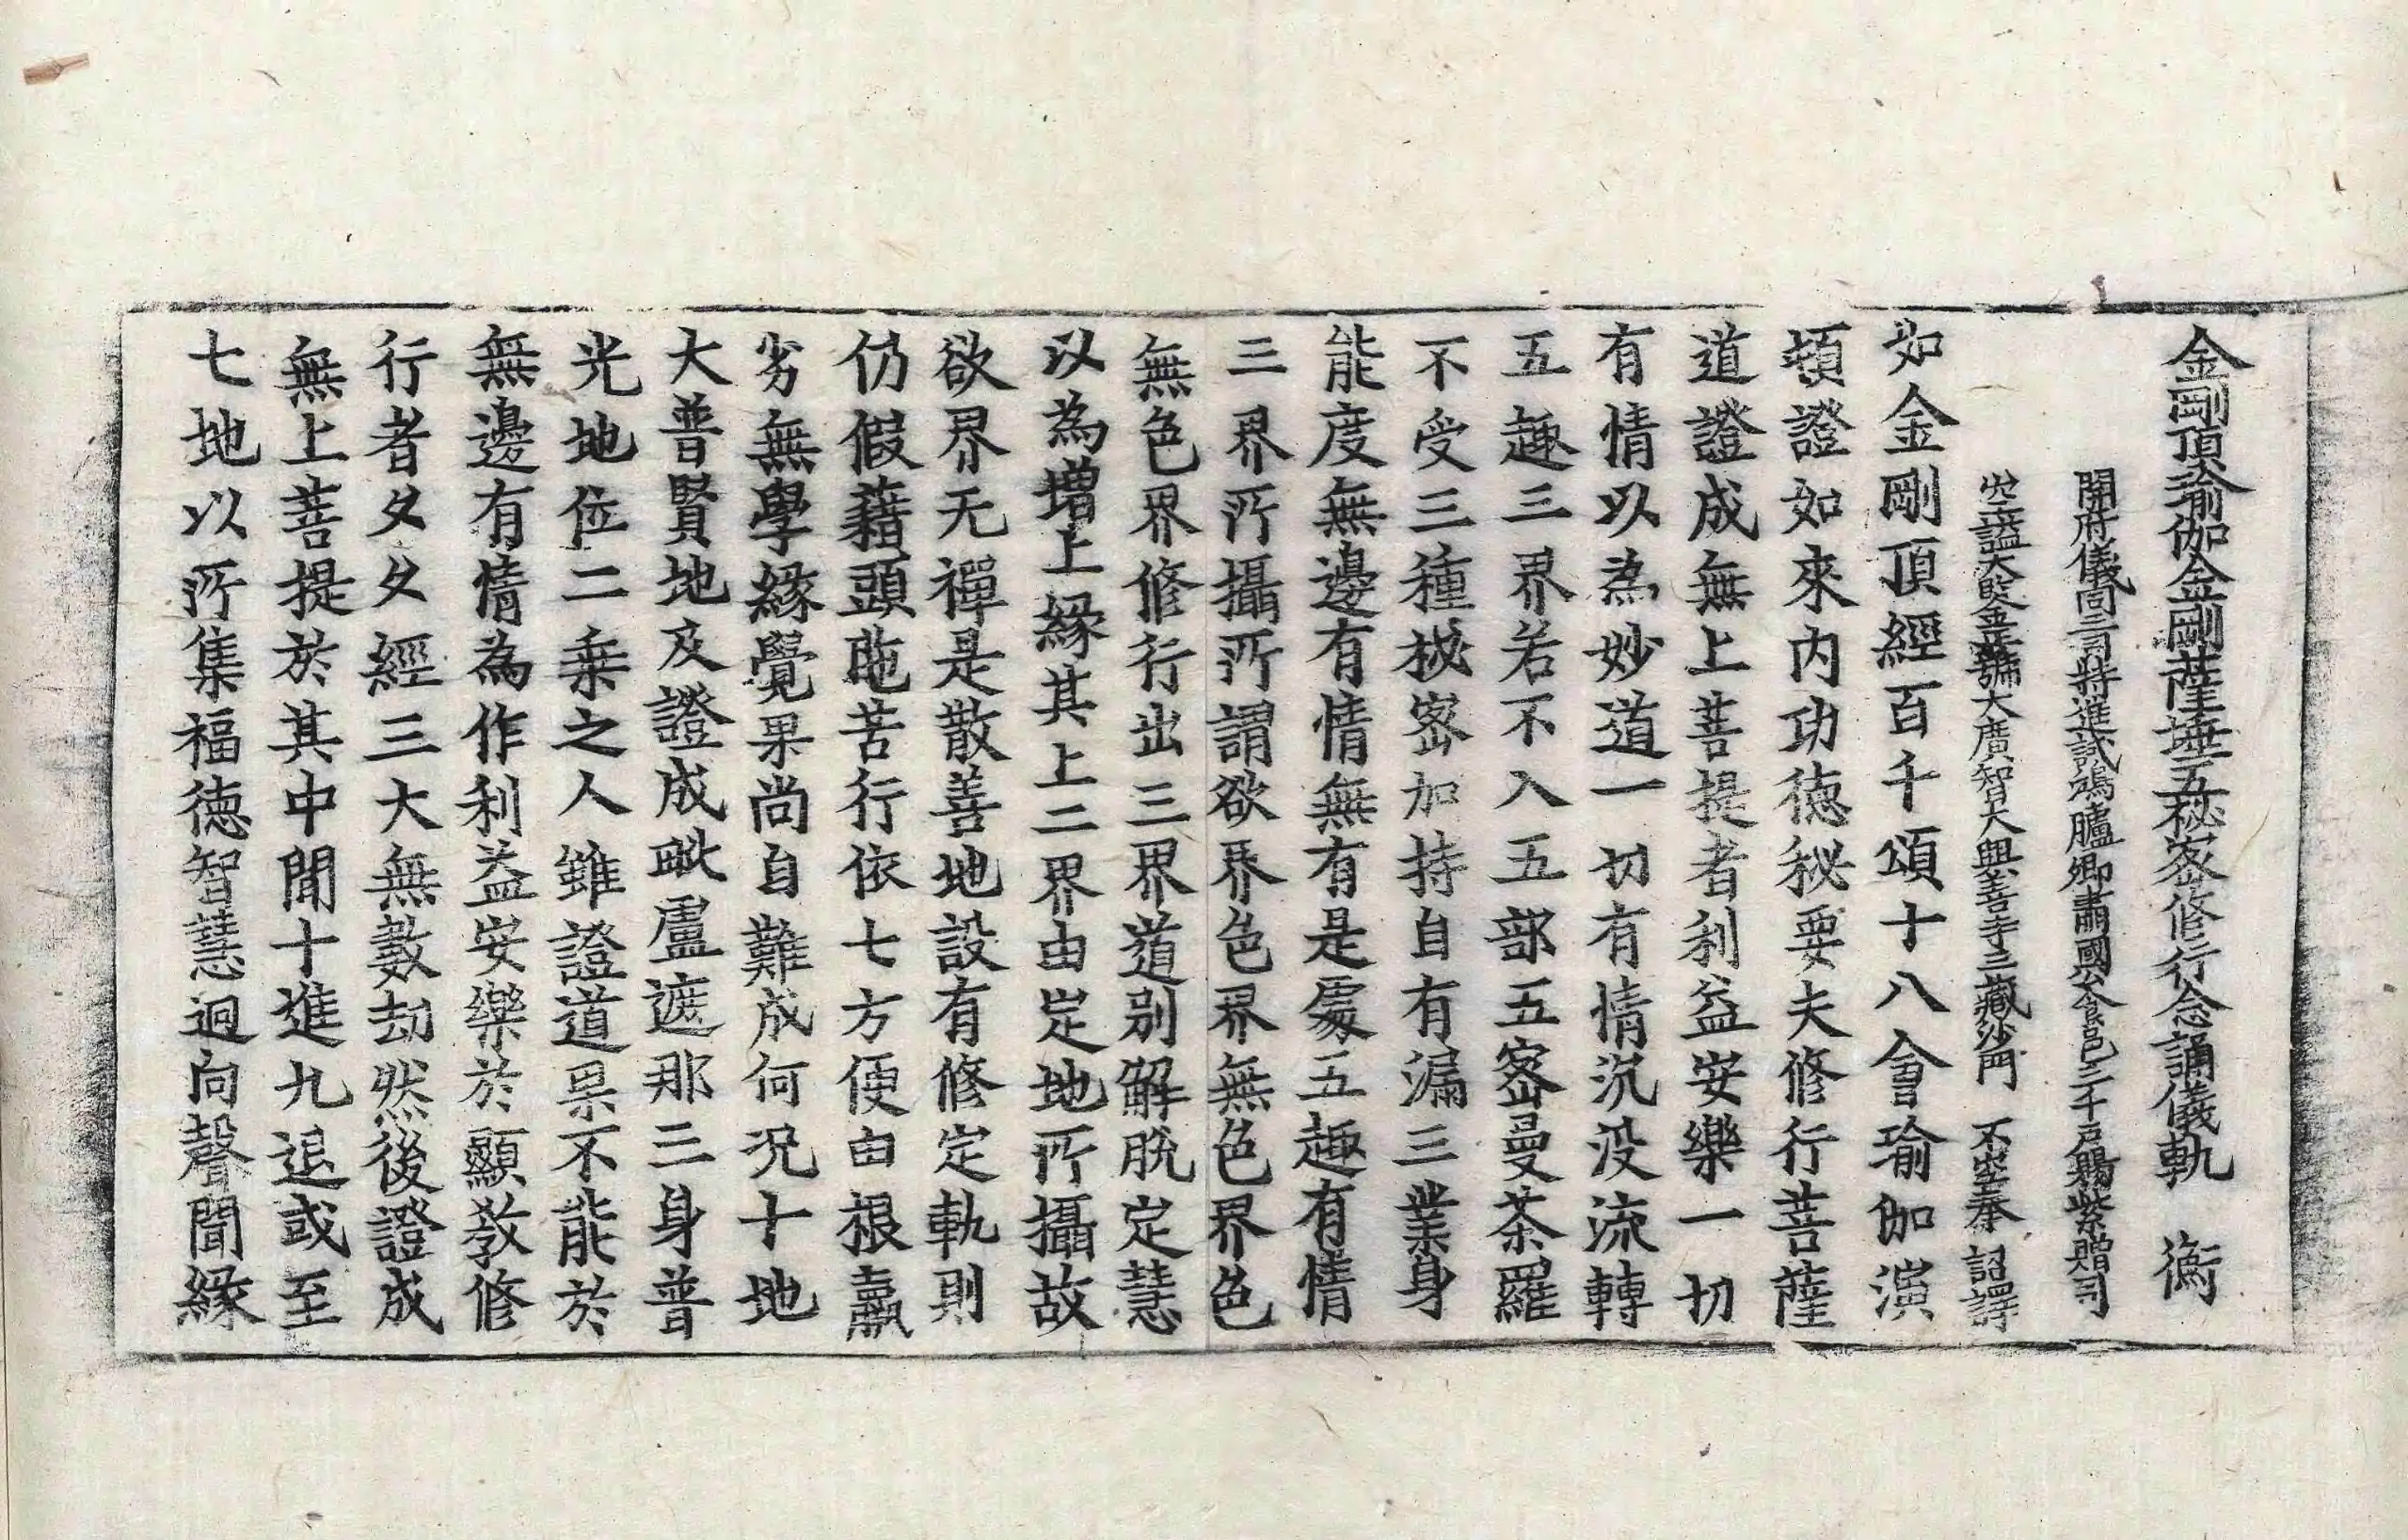 金剛頂瑜伽金剛薩埵五秘密修行念誦儀軌　衡
開府儀同三司特進試鴻臚卿肅國公食邑三千戶賜紫贈司
空謚大鑒正號大廣智大興善寺三藏沙門　不空奉　詔譯
如金剛頂經百千頌十八會瑜伽演
頓證如來內功德秘要夫修行菩薩
道證成無上菩提者利益安樂一切
有情以為妙道一切有情沉没流轉
五趣三界若不入五部五密曼荼羅
不受三種秘密加持自有漏三業身
能度無邊有情無有是處五趣有情
三界所攝所謂欲界色界無色界色
無色界修行出三界道別解脫定慧
以為增上緣其上二界由定地所攝故
欲界无禪是散善地設有修定軌則
仍假藉頭陁苦行依七方便由根羸
劣無學緣覺果尚自難成何況十地
大普賢地及證成毗盧遮那三身普
光地位二乗之人雖證道果不能於
無邊有情為作利益安樂於顯教修
行者久久經三大無數劫然後證成
無上菩提於其中間十進九退或至
七地以所集福德智慧迴向聲聞緣